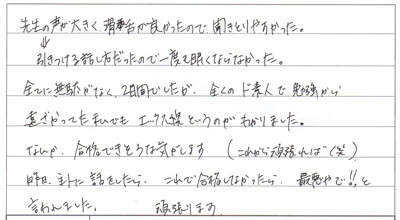 先生の声が大きく、滑舌が良かったので、聞きとりやすかった。
↓
引きつける話し方だったので一度も眠くならなかった。
全てに無駄がなく、2日間でしたが、全くのド素人で勉強から
遠ざかってた私でも エックス線というのがわかりました。
なんか、合格できそうな気がします (これから頑張れば(笑)
昨日、主人に話をしたら、これで合格しなかったら、最悪やで!!と
言われました。 頑張ります。